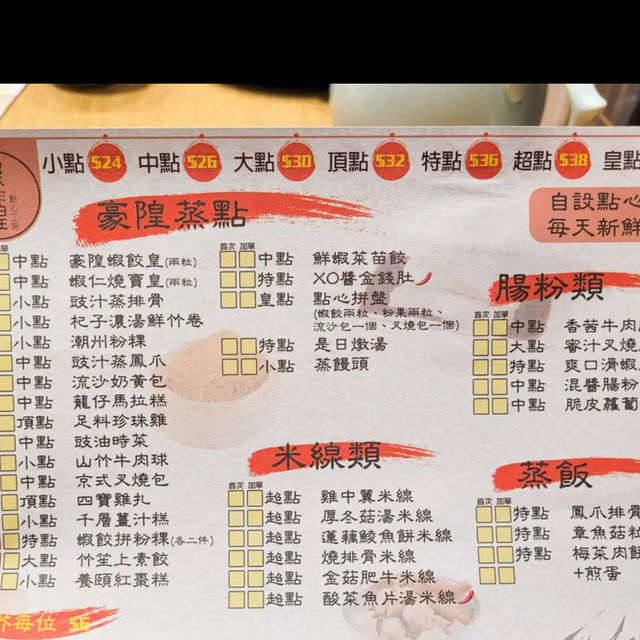 小點 $24 中點 $26 大點 $30 頂點 $32 特點 $36 超點 $38 皇點
點心工房
豪隍蒸點
中點 豪隍蝦餃皇(兩粒)
中點 蝦仁燒賣皇(兩粒)
小點 豉汁蒸排骨
小點 杞子濃湯鮮竹卷
小點 潮州粉粿
中點 豉汁蒸鳳爪
中點 流沙奶黃包
中點 籠仔馬拉糕
頂點 足料珍珠雞
中點 豉油時菜
小點 山竹牛肉球
中點 京式叉燒包
頂點 四寶雞扎
小點 千層薑汁糕
特點 蝦餃拼粉粿(各二件)
大點 竹笙上素餃
小點 養頤紅棗糕
首次 加單
中點 鮮蝦菜苗餃
特點 XO醬金錢肚
皇點 點心拼盤
(蝦餃兩粒、粉果兩粒、
流沙包一個、叉燒包一個)
特點 是日燉湯
小點 蒸饅頭
米線類
首次 加單
超點 雞中翼米線
超點 厚冬菇湯米線
超點 蓮藕鯪魚餅米線
超點 燒排骨米線
超點 金菇肥牛米線
超點 酸菜魚片湯米線
自設點心
每天新鮮
腸粉類
首次 加單
中點 香茜牛肉
大點 蜜汁叉燒
特點 爽口滑蝦
中點 混醬腸粉
中點 脆皮蘿蔔
蒸飯
首次 加單
特點 鳳爪排骨
特點 章魚菇粒
特點 梅菜肉餅
+煎蛋
每位 $6